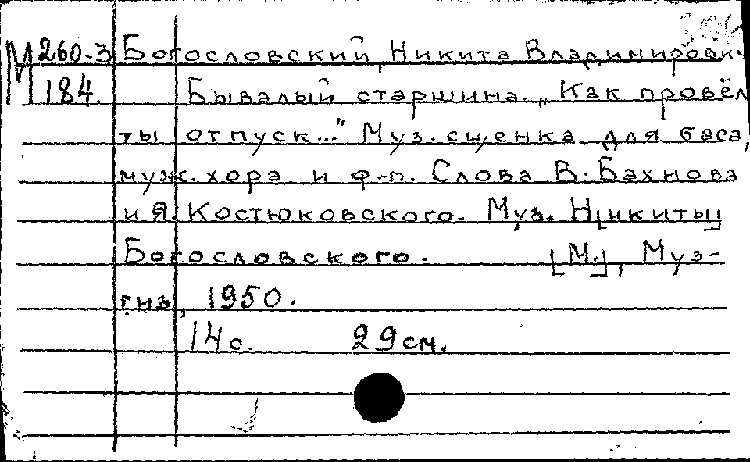 М 260-3 Богословский, Никита Владимирович.
184. Бывалый старшина. „Как провёл
ты отпуск..." Муз. сценка для баса,
муж. хора и ф-п. Слова В. Бахнова
и Я. Костюковского. Муз. Н[икиты]
Богословского. [М.], Муз-
гиз, 1950.
14 с. 29 см.